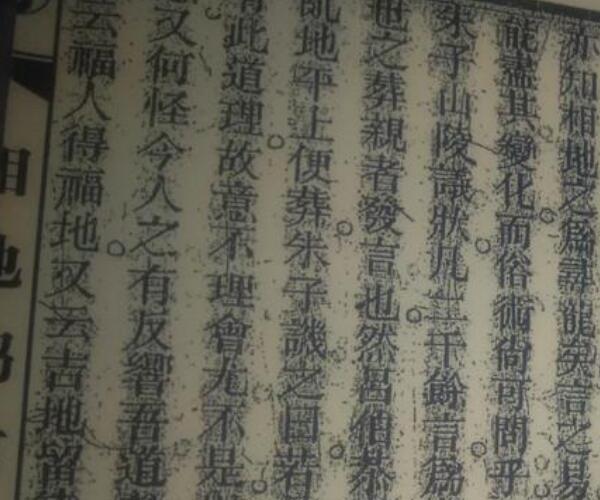 亦知相地之爲尋龍矣言之易
能盡其變化而俗術尙可問乎
朱子山陵議狀凡二千餘言爲
世之葬親者發言也然昌伯恭
亂地平上便葬朱子譏之曰若
此道理故意不理會尤不是
又何怪今人之有反響吾道
云福人得福地又云吉地留
相地